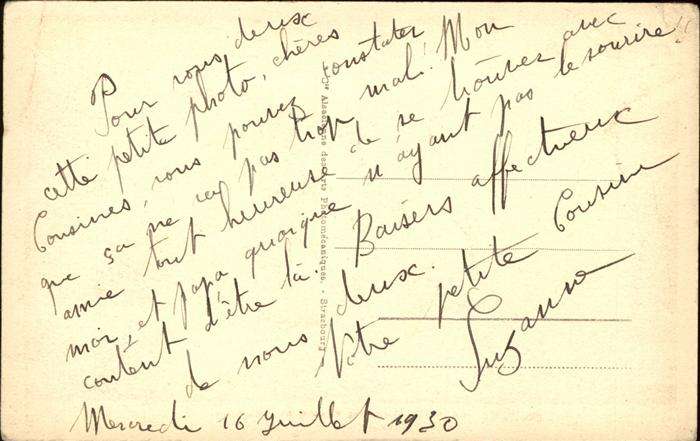 Pour vous deux
cette petite photo, chères
Cousines, vous pouvez constater
que ça ne va pas trop mal! Mon
amie tout heureuse de se trouver avec
moi, et papa quoique n'ayant pas le sourire!!
content d'être là. Baisers affectueux
de nous deux.
Votre petite Cousine
Suzanne
Mercredi 16 Juillet 1930
Cie Alsacienne des Arts Photomécaniques. - Strasbourg